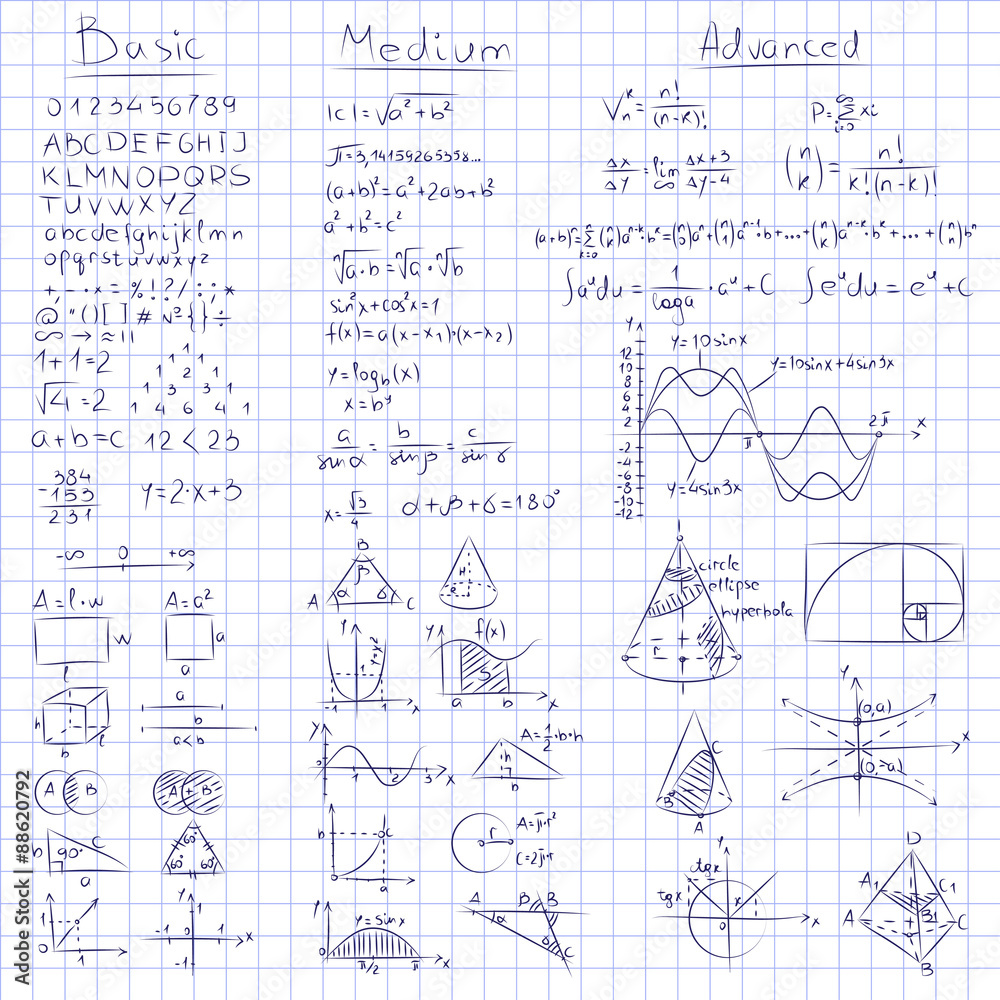 Basic
0 1 2 3 4 5 6 7 8 9
A B C D E F G H I J
K L M N O P Q R S
T U V W X Y Z
a b c d e f g h i j k l m n
o p q r s t u v w x y z
+ , - . · x = % ! ? / : ; *
@ " ( ) [ ] # № { } ÷
∞ → ≈ | |
1 + 1 = 2
√4 = 2
1
1 1
1 2 1
1 3 3 1
1 4 6 4 1
a + b = c 12 < 23
384
- 153
231
y = 2·x + 3
-∞ 0 +∞
A = l·w A = a²
w a
l a
h b l
a
b
a < b
A B A + B
b 90° c a
60° 60° 60°
1 0 1
y 1 -1 1 x -1
Medium
|c| = √a² + b²
π = 3,14159265358...
(a+b)² = a² + 2ab + b²
a² + b² = c²
ⁿ√a·b = ⁿ√a · ⁿ√b
sin²x + cos²x = 1
f(x) = a(x - x₁)·(x - x₂)
y = log_b(x)
x = b^y
a/sinα = b/sinβ = c/sinγ
x = √3/4 α + β + δ = 180°
B β A α δ C
H R
y y=x² 1 -1 1 x
y f(x) S a b x
y 0 1 2 3 x
A = 1/2·b·h
h b
b c 0 a
r A = π·r²
C = 2π·r
y y = sinx 0 π/2 π x
A α B β B δ C
Advanced
V_n^k = n!/(n-k)! P = Σ_{i=0}^∞ xi
Δx/Δy = lim ∞ Δx+3/Δy-4 (n k) = n!/k!(n-k)!
(a+b)ⁿ = Σ_{k=0}^n (n k)a^{n-k}·b^k = (n 0)aⁿ + (n 1)a^{n-1}·b + ... + (n k)a^{n-k}·b^k + ... + (n n)bⁿ
∫a^u du = 1/log a · a^u + C ∫e^u du = e^u + C
y
y = 10sinx
y = 10sinx + 4sin3x
12
10
8
6
4
2
-2
-4
-6
-8
-10
-12
π 2π x
y = 4sin3x
circle
ellipse
hyperbola
r
y (0,a) x (0,-a)
C B A
y ctgx tgx x 0 x
D A₁ C₁ B₁ A C B
Adobe Stock | #88620792